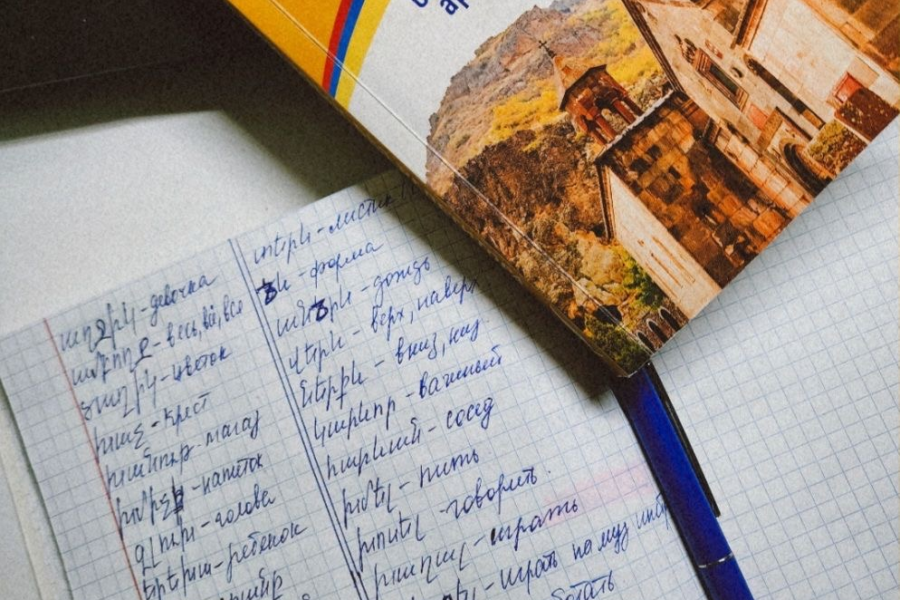 աղջիկ - девочка
ամբողջ - весь, вся, все
ծաղիկ - цветок
խաչ - крест
խանութ - магаз
խմիչք - напиток
գլուխ - голова
երեխա - ребенок
տերև - листик
ձև - форма
անձրև - дождь
վերև - верх, наверх
ներքև - вниз, низ
կարևոր - важный
հարևան - сосед
խմել - пить
խոսել - говорить
խաղալ - играть
играть на муз инстр